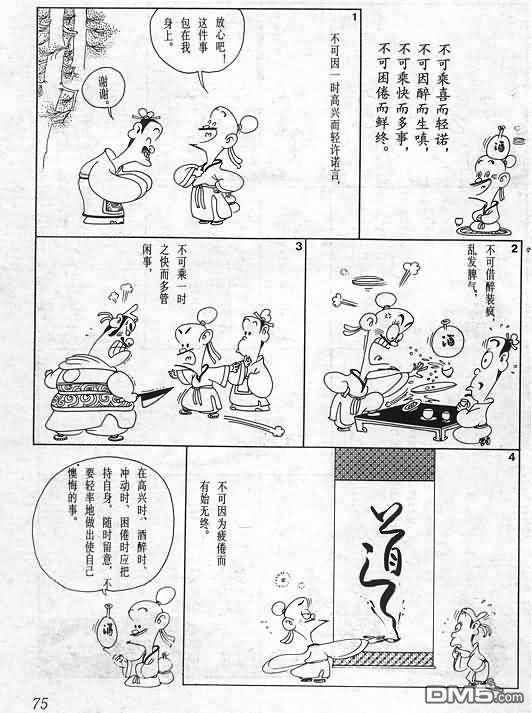 不可乘喜而轻诺，
不可因醉而生嗔，
不可乘快而多事，
不可因倦而鲜终。
酒
1
不可因一时高兴而轻许诺言，
放心吧！
这件事
包在我
身上。
谢谢。
2
不可借醉装疯，
乱发脾气，
酒
3
不可乘一时
之快而多管
闲事，
4
不可因为疲倦而
有始无终。
道
在高兴时、酒醉时、
冲动时、困倦时应把
持自身，随时留意，不
要轻率地做出使自己
懊悔的事。
酒
75
DM5.com